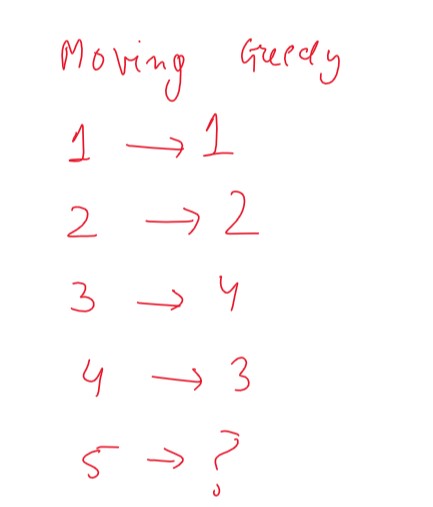 Moving Greedy
1 → 1
2 → 2
3 → 4
4 → 3
5 → ?